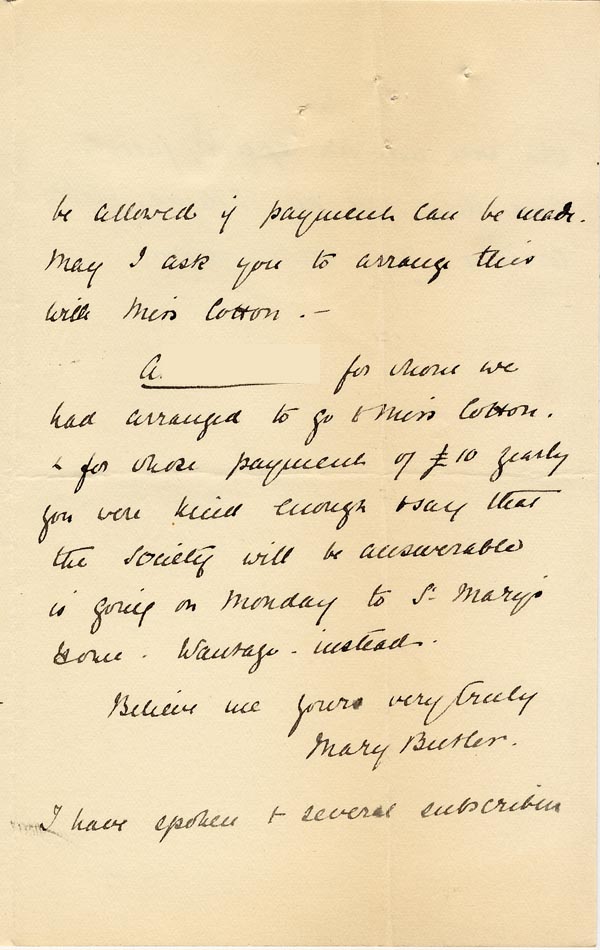 be allowed if payment can be made.
May I ask you to arrange this
with Miss Cotton. —
A. for whom we
had arranged to go to Miss Cotton.
& for whose payment of £10 yearly
you were kind enough to say that
the Society will be answerable
is going on Monday to St. Mary's
Home. Wantage. instead.
Believe me yours very truly
Mary Butler.
I have spoken to several subscribers